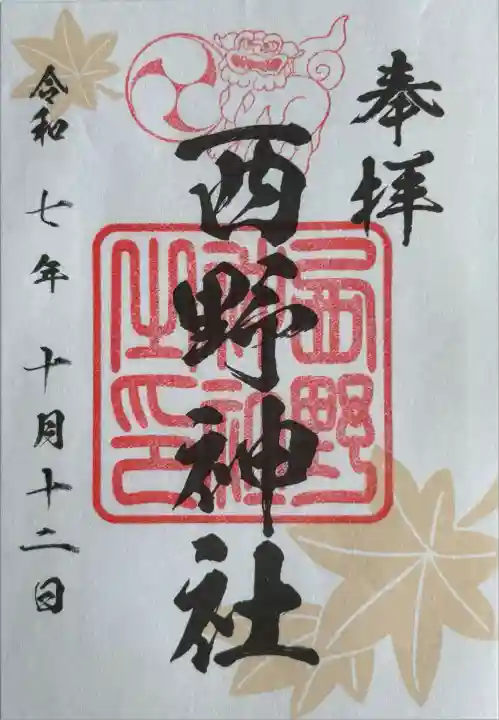 奉拝
西野神社
西野神社之印
令和 七年 十月十二日